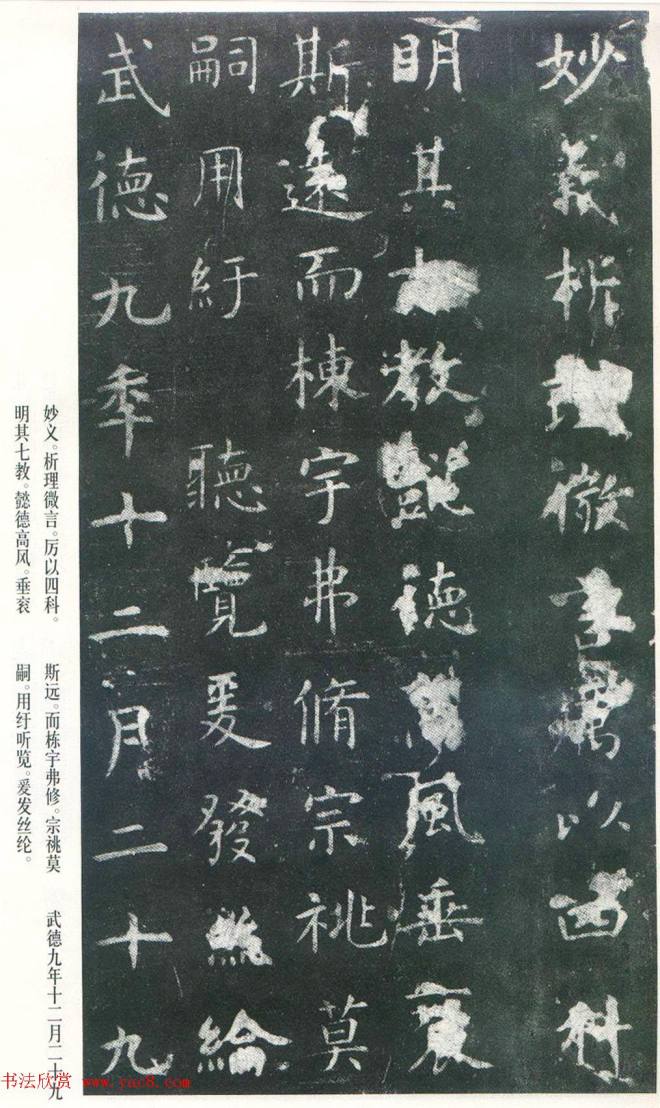 妙義析理微言厲以四科
明其七教懿德高風垂裒
斯遠而棟宇弗脩宗祧莫
嗣用紆 聽覽爰發絲綸
武德九秊十二月二十九
妙义。析理微言。厉以四科。
明其七教。懿德高风。垂裒
斯远。而栋宇弗修。宗祧莫
嗣。用纡听览。爰发丝纶。
武德九年十二月二十九
书法欣赏 www.yac8.com